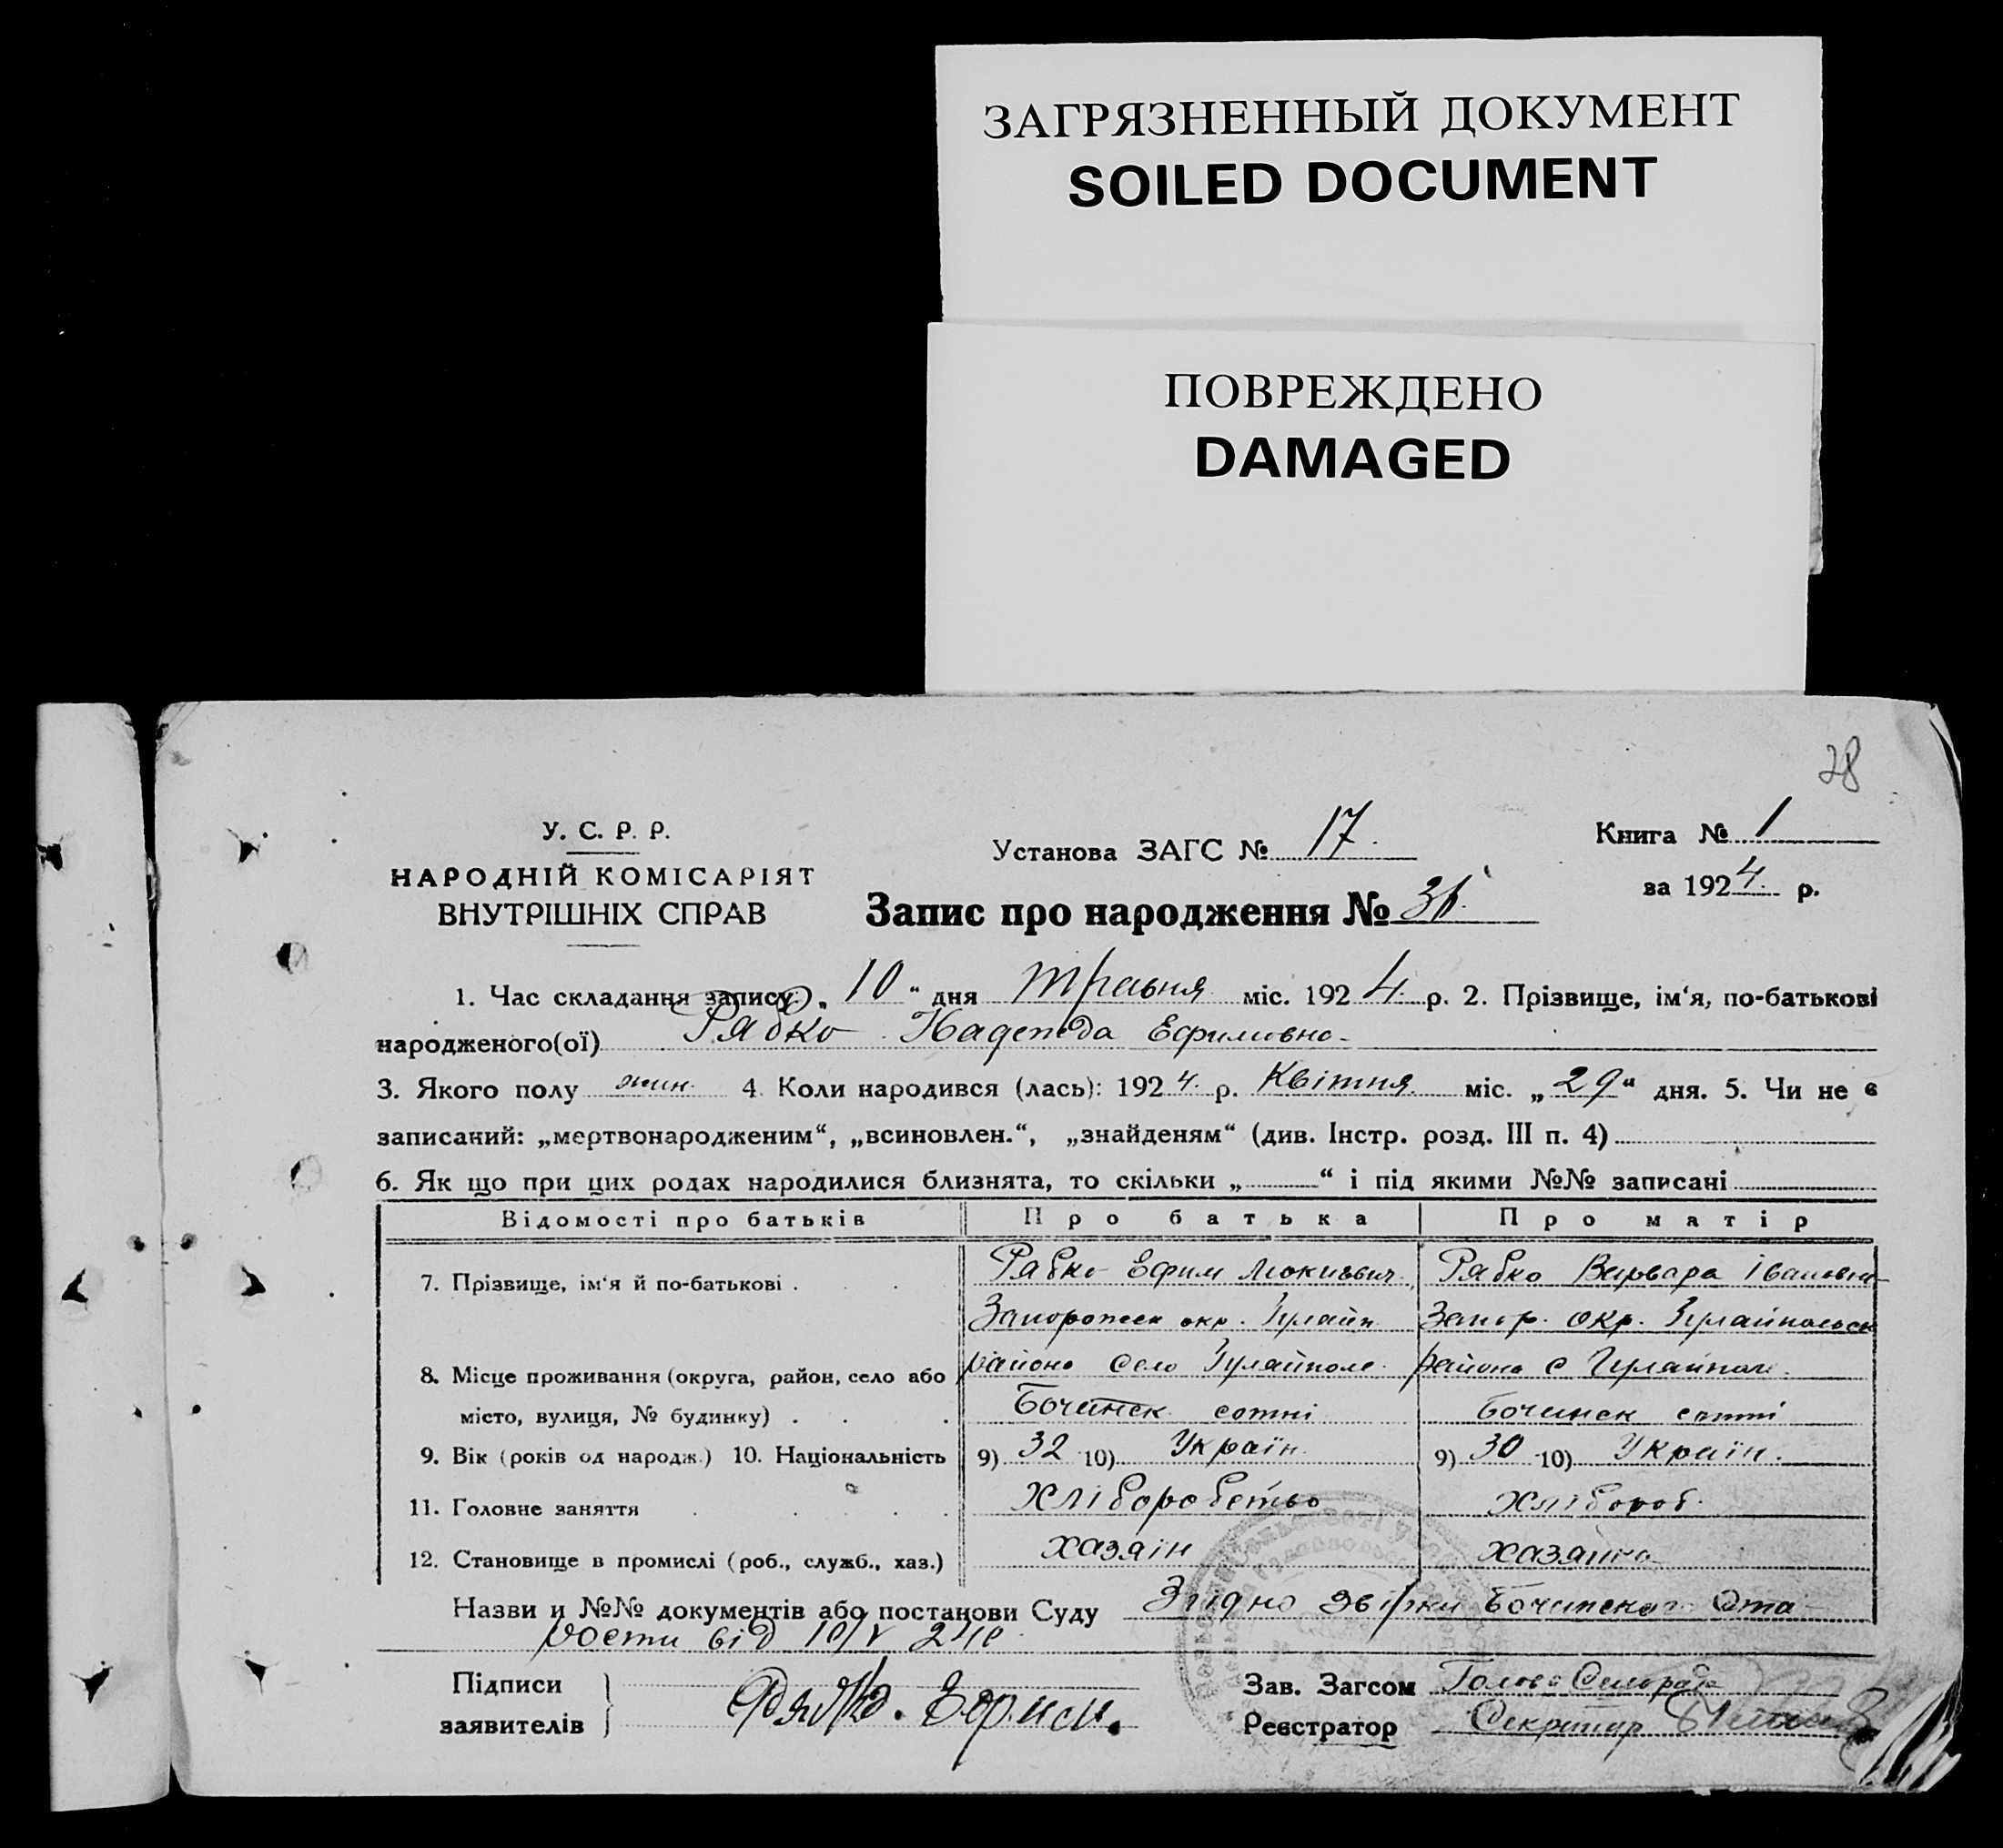 ЗАГРЯЗНЕННЫЙ ДОКУМЕНТ
SOILED DOCUMENT
ПОВРЕЖДЕНО
DAMAGED
28
У. С. Р. Р.
НАРОДНІЙ КОМІСАРІЯТ
ВНУТРІШНІХ СПРАВ
Установа ЗАГС № 17.
Запис про народження №
Книга № 1
за 1924. р.
1. Час складання запису „ 10 “ дня травня міс. 1924. р. 2. Прізвище, ім‘я, по-батькові
народженого(ої) Рябко Надежда Ефимовна
3. Якого полу жін. 4. Коли народився (лась): 1924. р. Квітня міс. „ 29 “ дня. 5. Чи не є
записаний: „мертвонародженим“, „всиновлен.“, „знайденям“ (див. Інстр. розд. III п. 4)
6. Як що при цих родах народилися близнята, то скільки „ “ і під якими №№ записані
Відомості про батьків Про батька Про матір
7. Прізвище, ім‘я й по-батькові . Рябко Ефим Рябко Варвара Івановна
Запорожск окр. Гуляйп. Запор. окр. Гуляйпольск
8. Місце проживання (округа, район, село або района село Гуляйполе района с Гуляйполе.
місто, вулиця, № будинку) . сотні сотні
9. Вік (років од народж.) 10. Національність 9) 32 10) Україн. 9) 30 10) Україн.
11. Головне заняття Хліборобство Хлібороб.
12. Становище в промислі (роб., служб., хаз.) хазяін хазяйка
Назви и №№ документів або постанови Суду Згідно
від 10/V 24 р
Підписи
заявителів
Рябко. Ефим.
Зав. Загсом Голова Сельради
Реєстратор Секретар